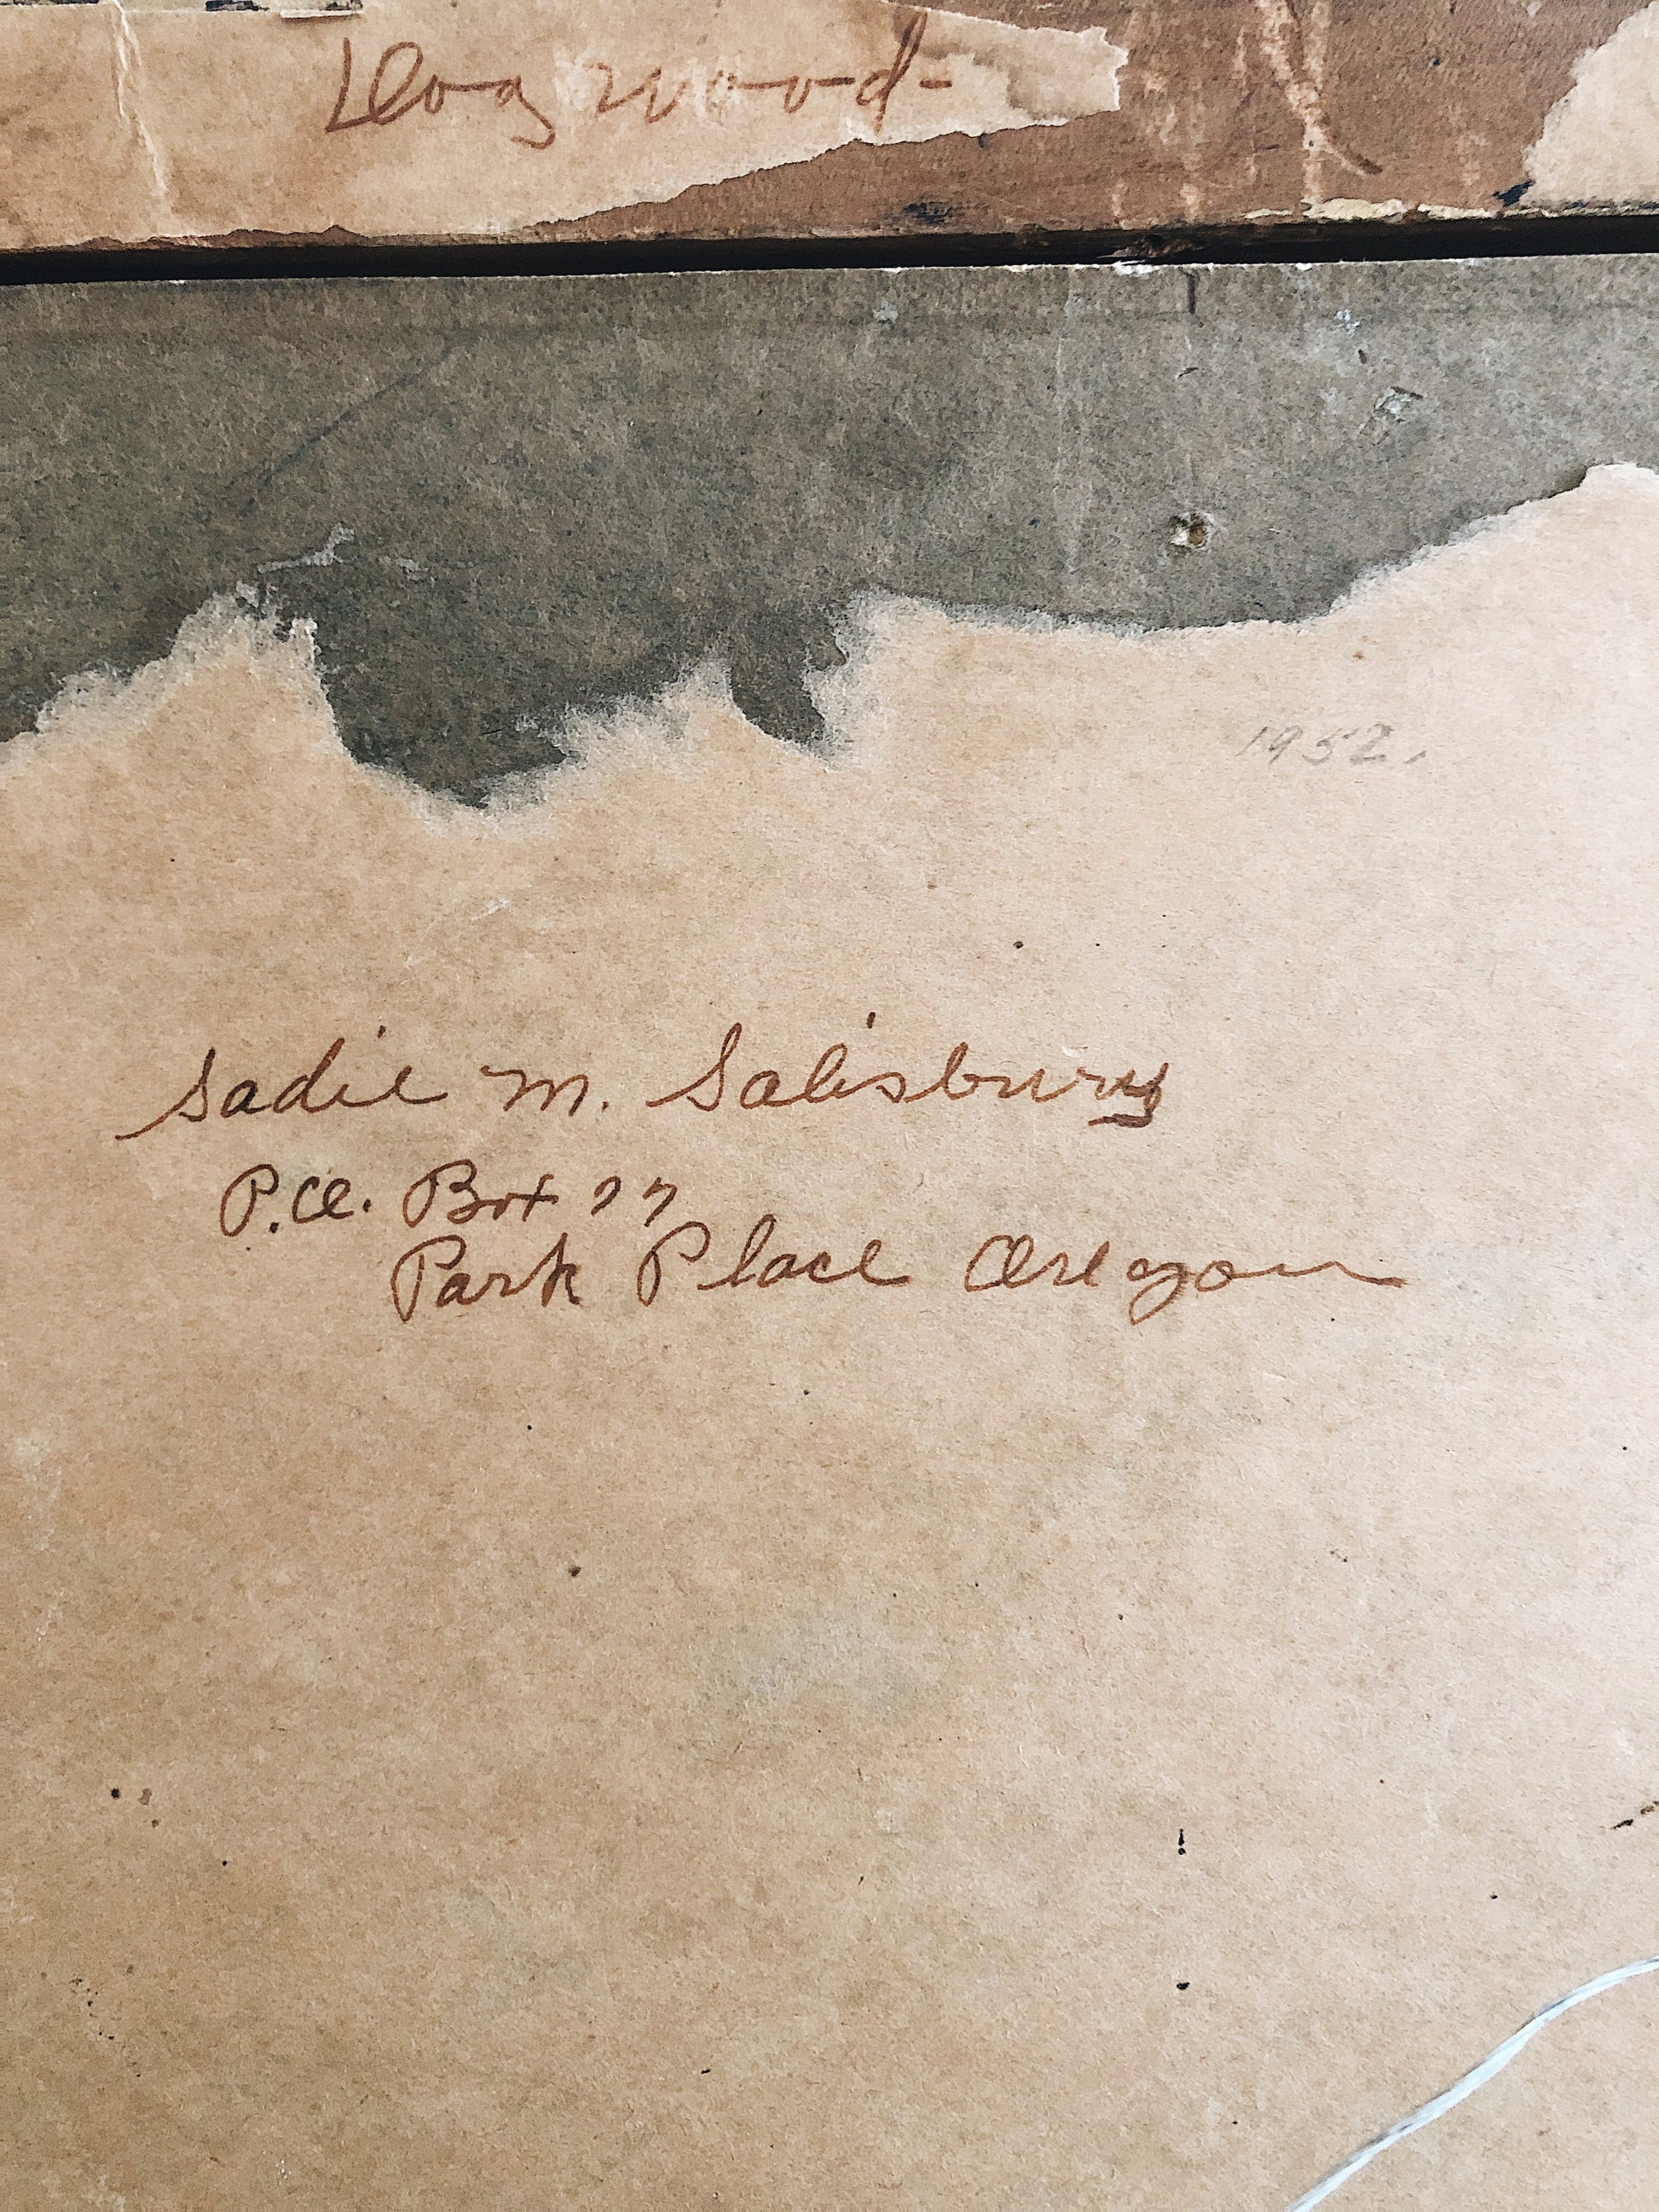 Dogwood-
1952.
Sadie M. Salisbury
P.O. Box 77
Park Place Oregon